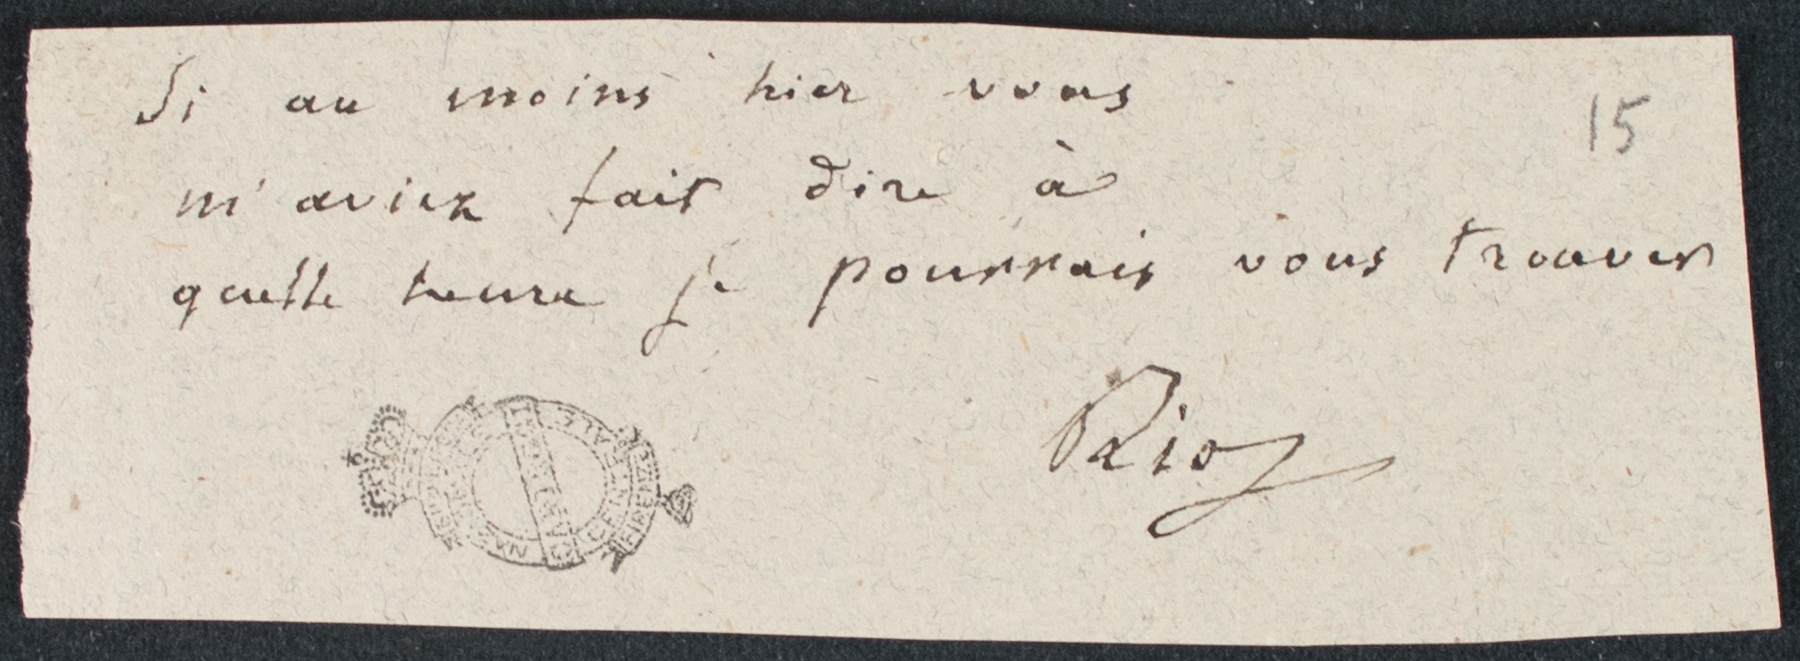 Si au moins hier vous
15
m'aviez fait dire à
quelle heure je pourrais vous trouver
Rio